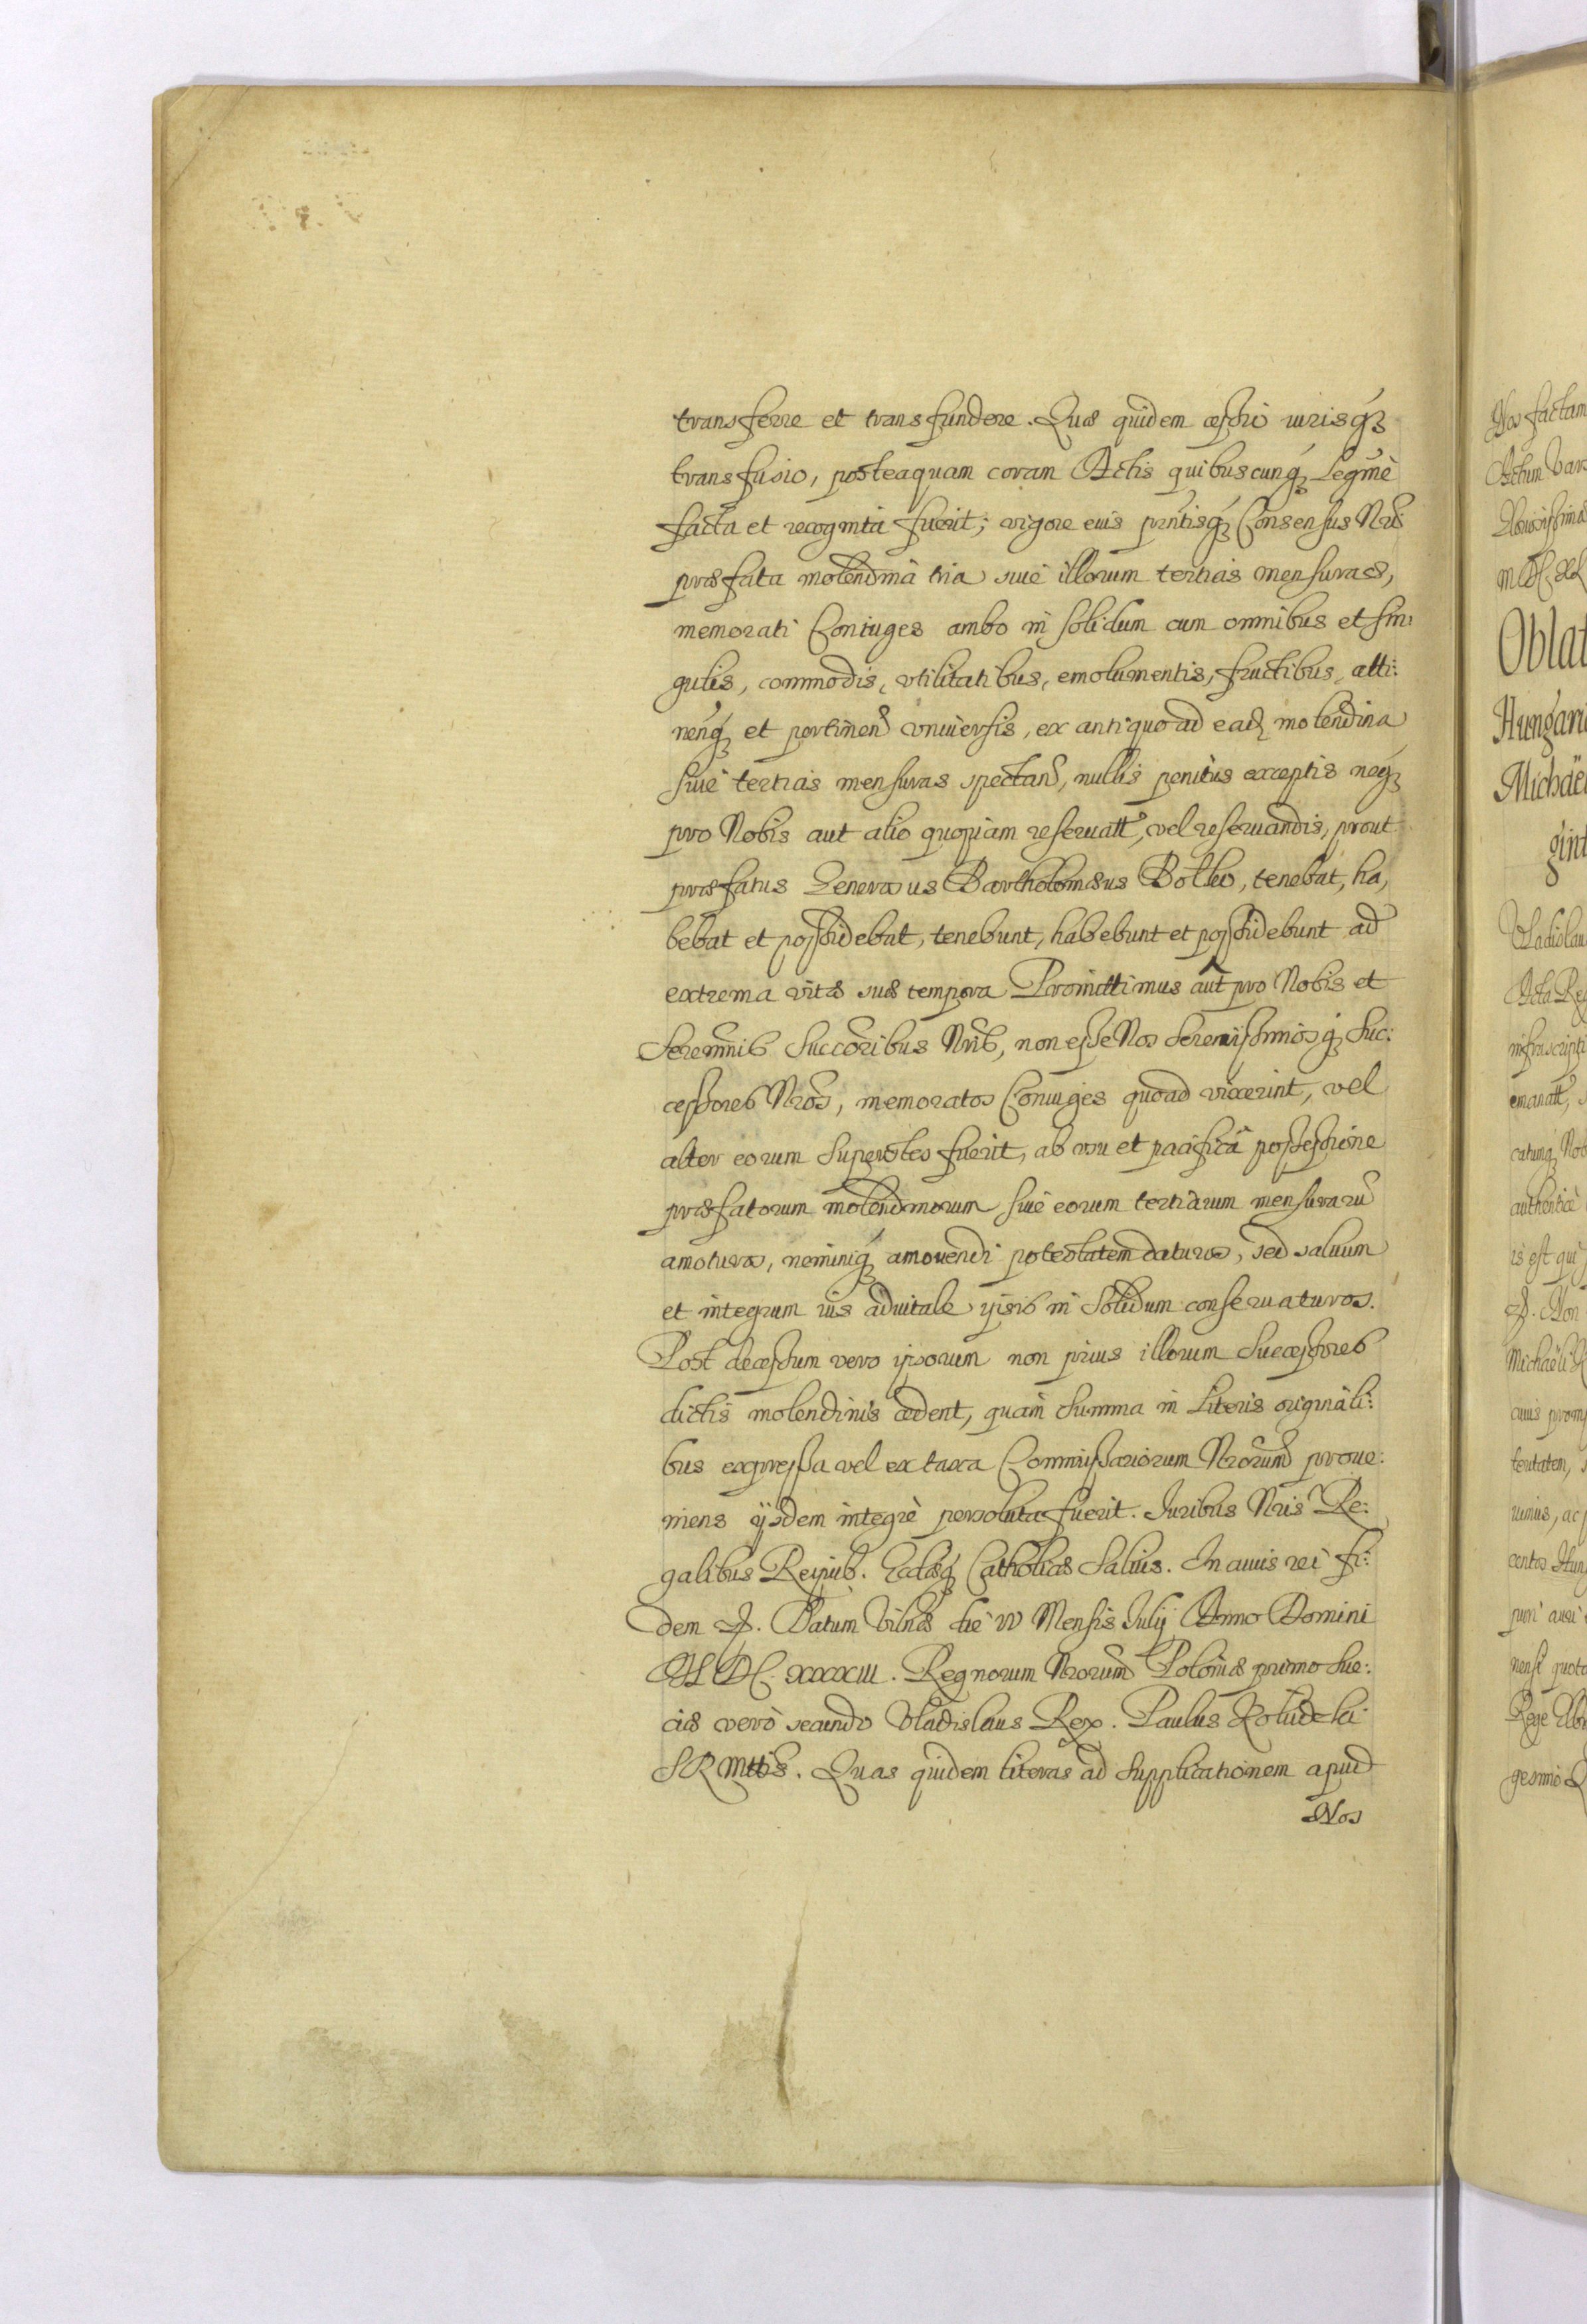 transferre et transfundere. Quæ quidem cessio iurisq́;
transfusio, posteaquam coram Actis quibuscunq́; Legitime
facta et recognita fuerit; vigore eius pr̃ntisq́; Consensus Nr̃i
præfata molendina tria siue illorum tertias mensuras,
memorati Coniuges ambo in solidum cum omnibus et sin:
gulis, commodis, vtilitatibus, emolumentis, fructibus, atti:
nenq́; et pertinen̄ vniuersis, ex antiquo ad ead; molendina
siue tertias mensuras spectan̄, nullis penitus exceptis neq́;
pro Nobis aut alio quopiam reseruatt̃, vel reseruandis, prout
præfatus Generosus Bartholomæus Bolko, tenebat, ha,
bebat et possidebat, tenebunt, habebunt et possidebunt ad
extrema vitæ suæ tempora Promittimus aut̃ pro Nobis et
Serenn̄is Succõribus Nr̃is, non esse Nos Serenissimosq́; Suc:
cessores Nr̃os, memoratos Coniuges quoad vixerint, vel
alter eorum superstes fuerit, ab vsu et pacificâ possessione
præfatorum molendinorum siue eorum tertiarum mensurarū
amoturos, neminiq́; amouendi potestatem daturos, sed saluum
et integrum ius aduitale ipsis in solidum conseruaturos.
Post decessum vero ipsorum non prius illorum Successores
dictis molendinis cedent, quam summa in Literis originali:
bus expressa vel ex taxa Commissariorum Nr̃orum proue:
niens ijsdem integrè persoluta fuerit. Iuribus Nr̃is Re:
galibus Reipub. Ecclæq́; Catholicæ Saluis. In cuius rei fi:
dem &. Datum Vilnæ die IV Mensis Iulij Anno Domini
M DC. XXXXIII. Regnorum Nr̃orum Poloniæ primo Sue:
ciæ verò secundo Vladislaus Rex. Paulus Kołudzki
S R Mttis. Quas quidem literas ad supplicationem apud
Nos
Nos factam
Actum Vars
M DC. XL
Oblat
Hungari
Michaël
gint
Vladislau
Acta Reg
infrascripti
emanatt̃,
catunq́; Nos
authenticè
is est qui
&. Non
Michaëli
cuius prom
teutatem,
uimus, ac
centos Hun
puri auri
nense quota
Rege
gesimo